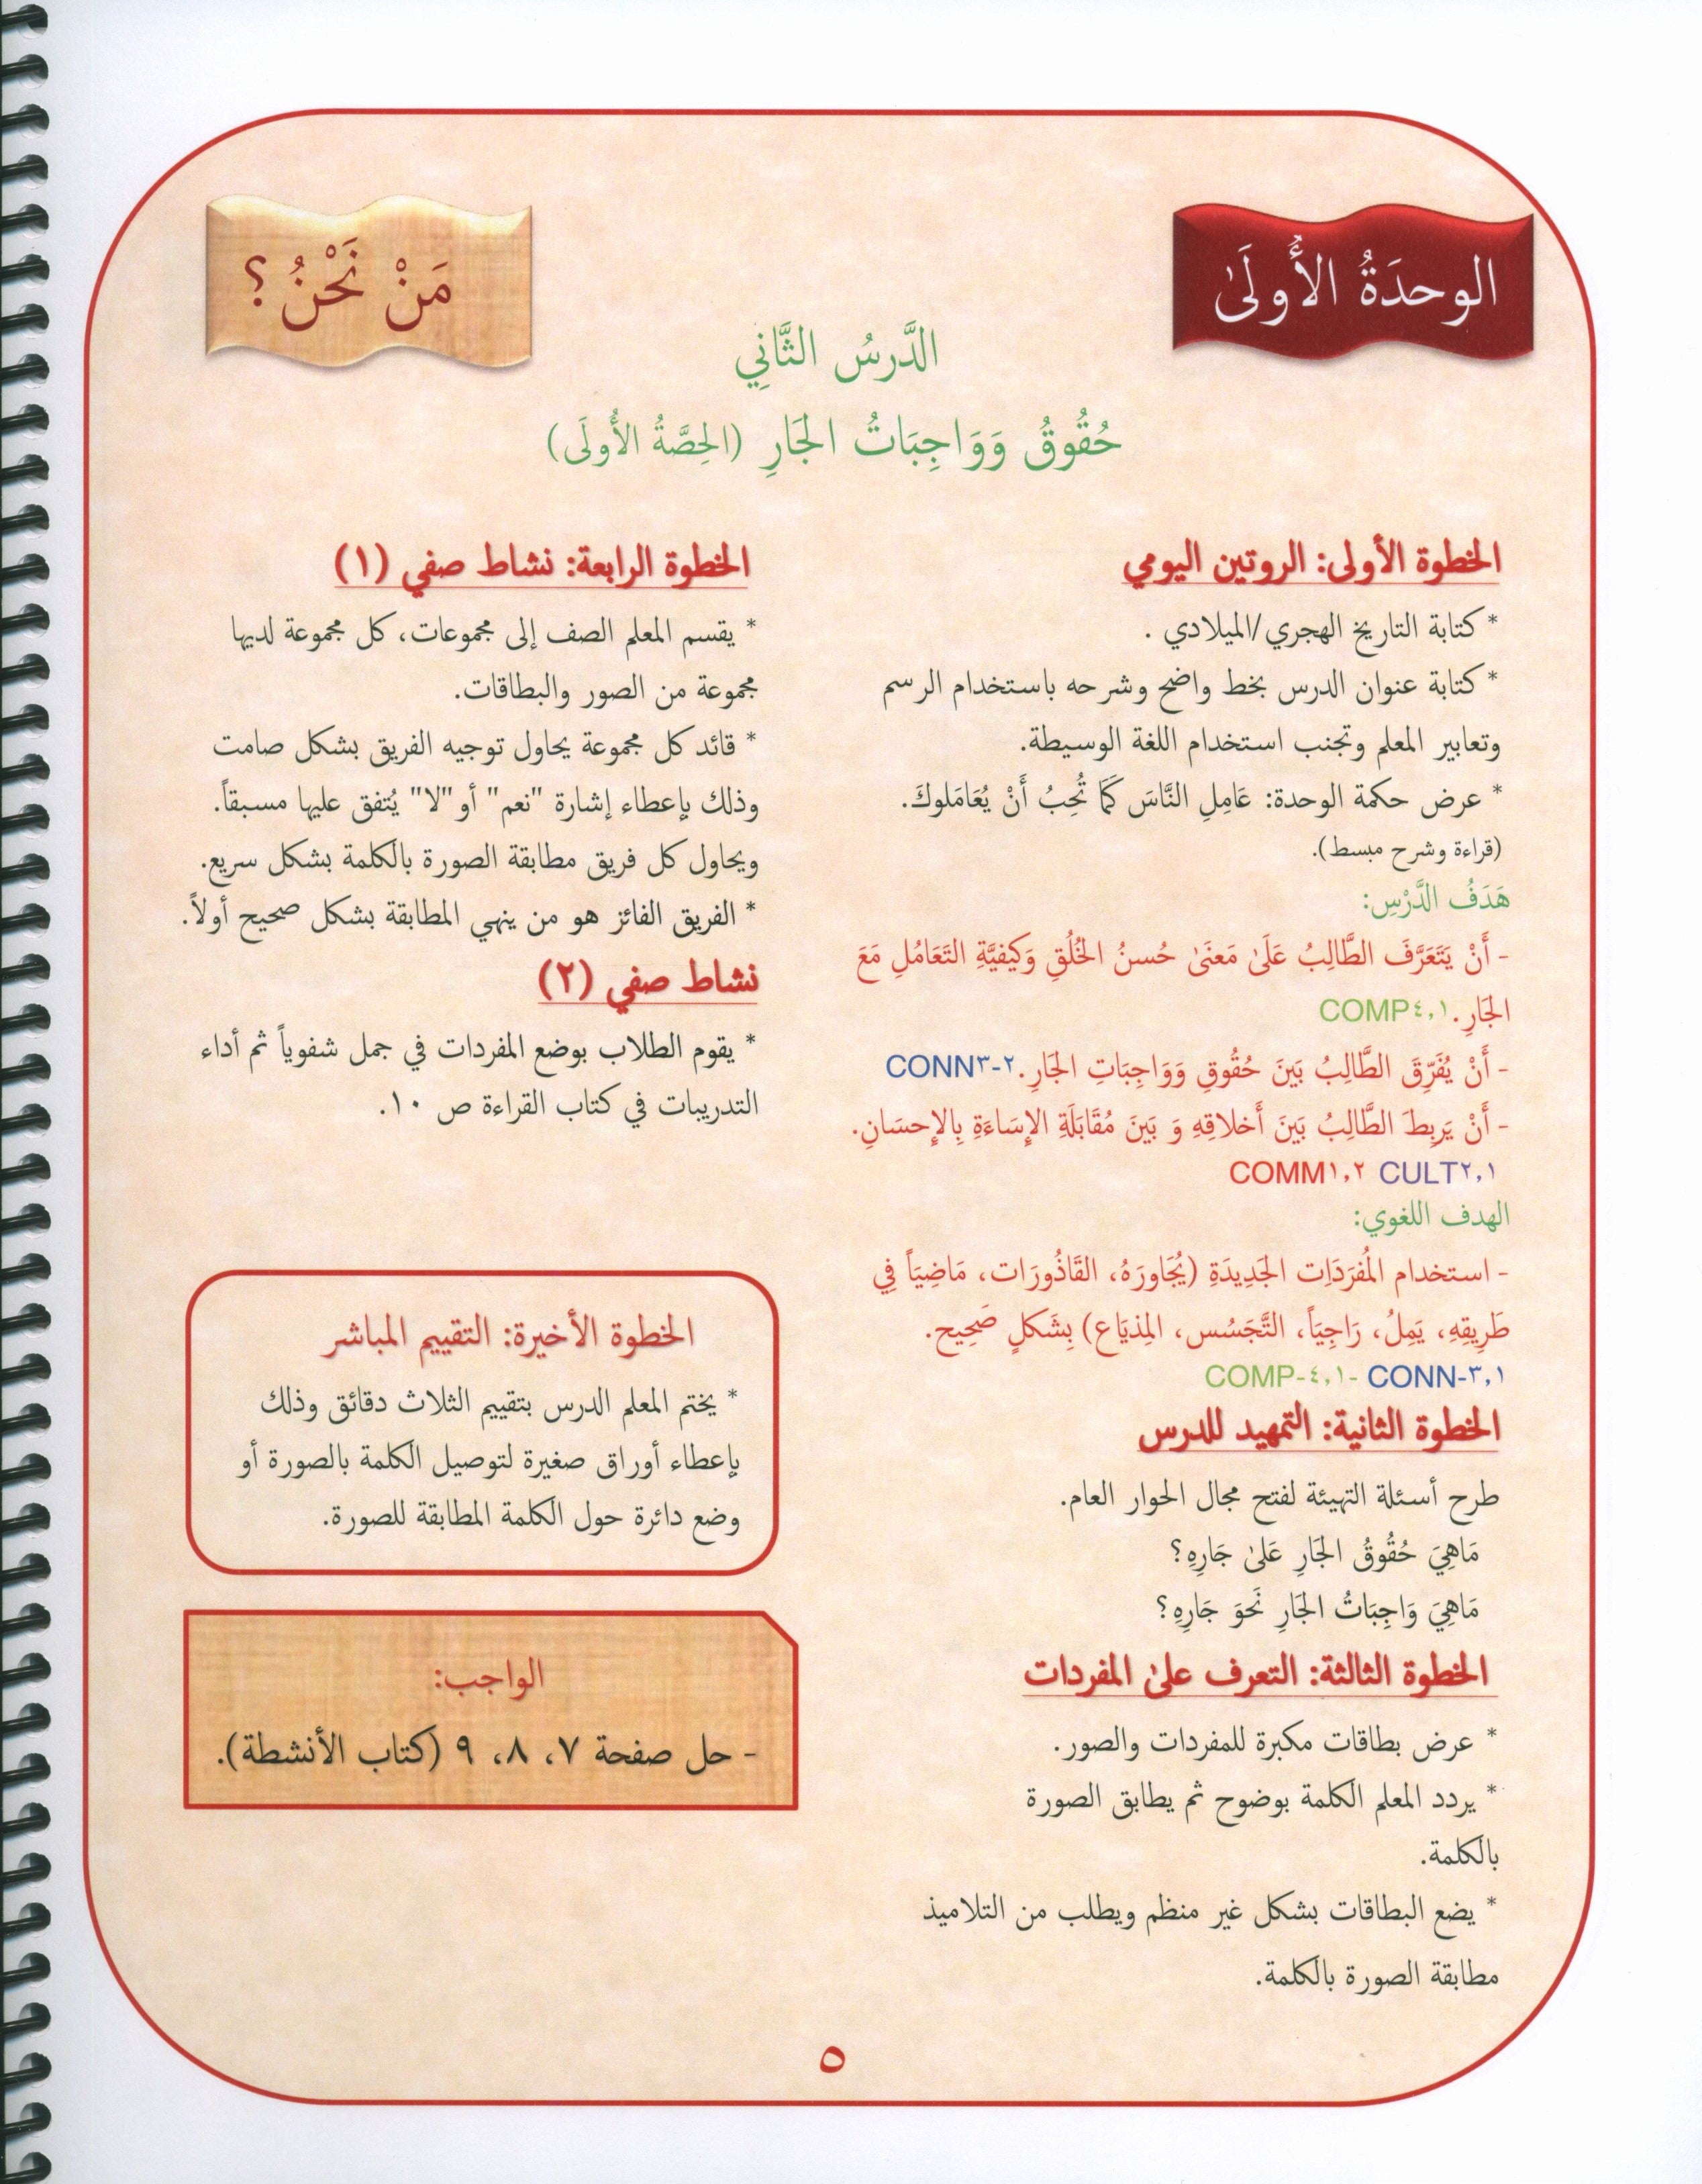 الوحدَةُ الأُولَىٰ
مَنْ نَحْنُ ؟
الدَّرسُ الثَّانِي
حُقُوقُ وَوَاجِبَاتُ الجَارِ (الحِصَّةُ الأُولَى)
الخطوة الأولى: الروتين اليومي
* كتابة التاريخ الهجري/الميلادي .
* كتابة عنوان الدرس بخط واضح وشرحه باستخدام الرسم
وتعابير المعلم وتجنب استخدام اللغة الوسيطة.
* عرض حكمة الوحدة: عَامِلِ النَّاسَ كَمَا تُحِبُ أَنْ يُعَامَلوكَ.
(قراءة وشرح مبسط).
هَدَفُ الدَّرْسِ:
- أَنْ يَتَعَرَّفَ الطَّالِبُ عَلَىٰ مَعنَىٰ حُسنُ الخُلُقِ وَكَيفيَّةِ التَعَامُلِ مَعَ
الجَارِ. COMP٤,١
- أَنْ يُفَرِّقَ الطَّالِبُ بَينَ حُقُوقِ وَوَاجِبَاتِ الجَارِ. CONN٣-٢
- أَنْ يَربِطَ الطَّالِبُ بَينَ أَخلاقِهِ وَ بَينَ مُقَابَلَةِ الإِسَاءَةِ بِالإِحسَانِ.
CULT٢,١ COMM١,٢
الهدف اللغوي:
- استخدام المُفرَدَاِت الجَدِيدَةِ (يُجَاورَهُ، القَاذُورَات، مَاضِيَاً فِي
طَرِيقِهِ، يَمِلُ، رَاجِيَاً، التَّجَسُس، المِذيَاع) بِشَكلٍ صَحِيح.
CONN-٣,١ COMP-٤,١-
الخطوة الثانية: التمهيد للدرس
طرح أسئلة التهيئة لفتح مجال الحوار العام.
مَاهِيَ حُقُوقُ الجَارِ عَلىٰ جَارِهِ؟
مَاهِيَ وَاجِبَاتُ الجَارِ نَحوَ جَارِهِ؟
الخطوة الثالثة: التعرف علىٰ المفردات
* عرض بطاقات مكبرة للمفردات والصور.
* يردد المعلم الكلمة بوضوح ثم يطابق الصورة
بالكلمة.
* يضع البطاقات بشكل غير منظم ويطلب من التلاميذ
مطابقة الصورة بالكلمة.
الخطوة الرابعة: نشاط صفي (١)
* يقسم المعلم الصف إلى مجموعات، كل مجموعة لديها
مجموعة من الصور والبطاقات.
* قائد كل مجموعة يحاول توجيه الفريق بشكل صامت
وذلك بإعطاء إشارة "نعم" أو "لا" يُتفق عليها مسبقاً.
ويحاول كل فريق مطابقة الصورة بالكلمة بشكل سريع.
* الفريق الفائز هو من ينهي المطابقة بشكل صحيح أولاً.
نشاط صفي (٢)
* يقوم الطلاب بوضع المفردات في جمل شفوياً ثم أداء
التدريبات في كتاب القراءة ص ١٠.
الخطوة الأخيرة: التقييم المباشر
* يختم المعلم الدرس بتقييم الثلاث دقائق وذلك
بإعطاء أوراق صغيرة لتوصيل الكلمة بالصورة أو
وضع دائرة حول الكلمة المطابقة للصورة.
الواجب:
- حل صفحة ٧، ٨، ٩ (كتاب الأنشطة).
٥